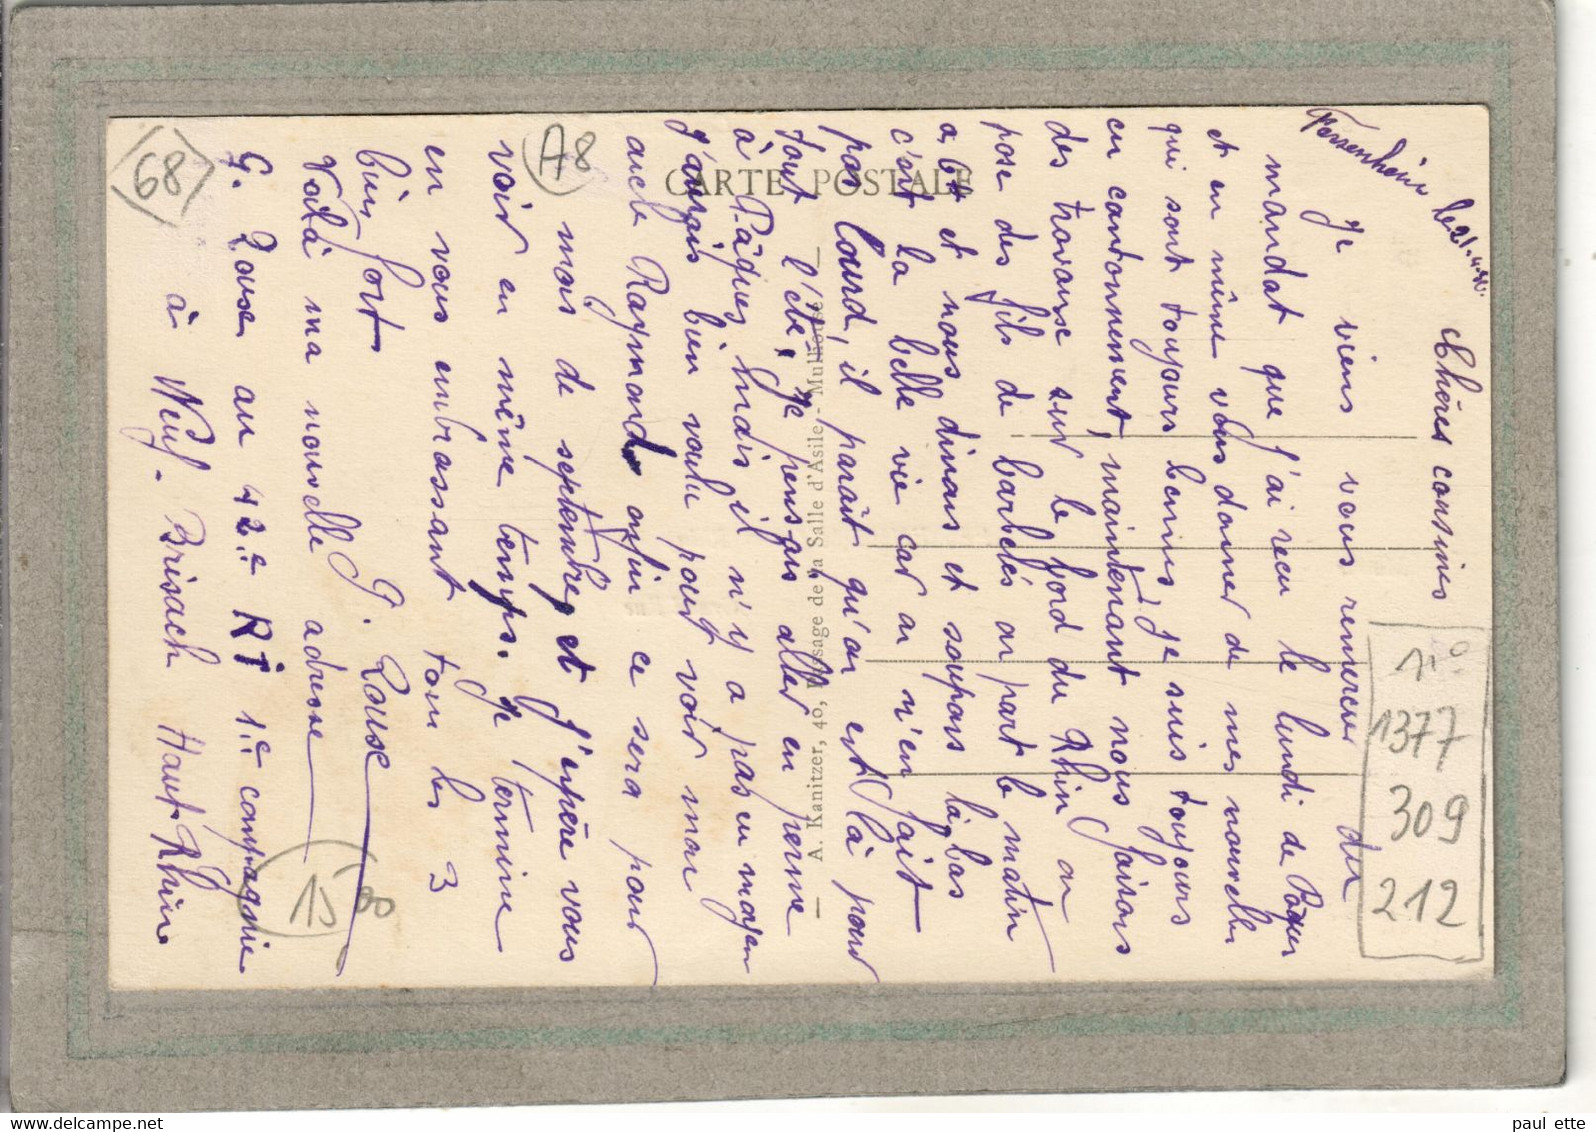 Fessenheim le 21.4.30.
Chères cousines
Je viens vous remercier du
mandat que j'ai reçu le lundi de Pâques
et en même vous donner de mes nouvelles
qui sont toujours bonnes, je suis toujours
en cantonnement, maintenant nous faisons
des travaux sur le bord du Rhin on
pose des fils de barbelés on part le matin
a 6h et nous dinons et soupons là, bas
c'est la belle vie car on n'en fait
pas lourd, il paraît qu'on est là pour
tout l'été, je pensais aller en perme
à Pâques mais il n'y a pas eu moyen
j'aurais bien voulu pour voir mon
oncle Raymond, enfin ce sera pour
mois de septembre, et j'espère vous
voir en même temps. je termine
en vous embrassant tous les 3
bien fort
G. Rouse
Voilà ma nouvelle adresse
G. Rouse au 42.e R I 1.e compagnie
à Neuf. Brisach Haut Rhin
CARTE POSTALE
— A. Kanitzer, 40, Passage de la Salle d'Asile - Mulhouse —
68
A8
15 00
1377
309
212
www.delcampe.net
paul ette